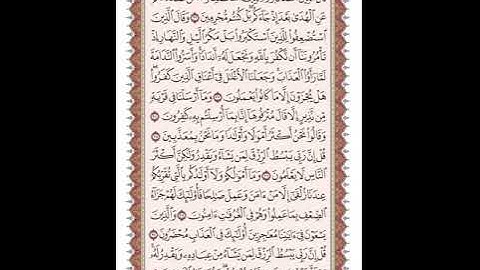 عَنِ ٱلْهُدَىٰ بَعْدَ إِذْ جَآءَكُم بَلْ كُنتُم مُّجْرِمِينَ وَقَالَ ٱلَّذِينَ
ٱسْتُضْعِفُوا۟ لِلَّذِينَ ٱسْتَكْبَرُوا۟ بَلْ مَكْرُ ٱلَّيْلِ وَٱلنَّهَارِ إِذْ
تَأْمُرُونَنَآ أَن نَّكْفُرَ بِٱللَّهِ وَنَجْعَلَ لَهُۥٓ أَندَادًا وَأَسَرُّوا۟ ٱلنَّدَامَةَ
لَمَّا رَأَوُا۟ ٱلْعَذَابَ وَجَعَلْنَا ٱلْأَغْلَٰلَ فِىٓ أَعْنَاقِ ٱلَّذِينَ كَفَرُوا۟
هَلْ يُجْزَوْنَ إِلَّا مَا كَانُوا۟ يَعْمَلُونَ وَمَآ أَرْسَلْنَا فِى قَرْيَةٍ
مِّن نَّذِيرٍ إِلَّا قَالَ مُتْرَفُوهَآ إِنَّا بِمَآ أُرْسِلْتُم بِهِۦ كَٰفِرُونَ
وَقَالُوا۟ نَحْنُ أَكْثَرُ أَمْوَٰلًا وَأَوْلَٰدًا وَمَا نَحْنُ بِمُعَذَّبِينَ
قُلْ إِنَّ رَبِّى يَبْسُطُ ٱلرِّزْقَ لِمَن يَشَآءُ وَيَقْدِرُ وَلَٰكِنَّ أَكْثَرَ
ٱلنَّاسِ لَا يَعْلَمُونَ وَمَآ أَمْوَٰلُكُمْ وَلَآ أَوْلَٰدُكُم بِٱلَّتِى تُقَرِّبُكُمْ
عِندَنَا زُلْفَىٰٓ إِلَّا مَنْ ءَامَنَ وَعَمِلَ صَٰلِحًا فَأُو۟لَٰٓئِكَ لَهُمْ جَزَآءُ
ٱلضِّعْفِ بِمَا عَمِلُوا۟ وَهُمْ فِى ٱلْغُرُفَٰتِ ءَامِنُونَ وَٱلَّذِينَ
يَسْعَوْنَ فِىٓ ءَايَٰتِنَا مُعَٰجِزِينَ أُو۟لَٰٓئِكَ فِى ٱلْعَذَابِ مُحْضَرُونَ
قُلْ إِنَّ رَبِّى يَبْسُطُ ٱلرِّزْقَ لِمَن يَشَآءُ مِنْ عِبَادِهِۦ وَيَقْدِرُ لَهُۥ